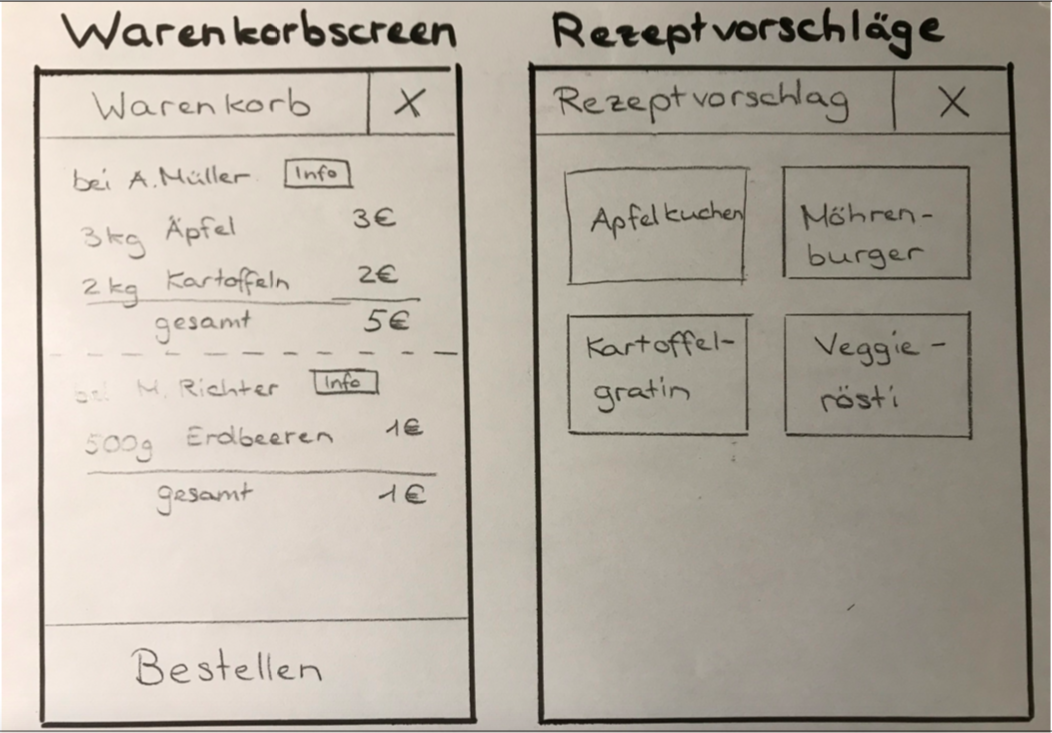 Warenkorbscreen
Warenkorb X
bei A. Müller Info
3kg Äpfel 3€
2kg Kartoffeln 2€
gesamt 5€
bei M. Richter Info
500g Erdbeeren 1€
gesamt 1€
Bestellen
Rezeptvorschläge
Rezeptvorschlag X
Apfelkuchen
Möhren-
burger
Kartoffel-
gratin
Veggie-
rösti